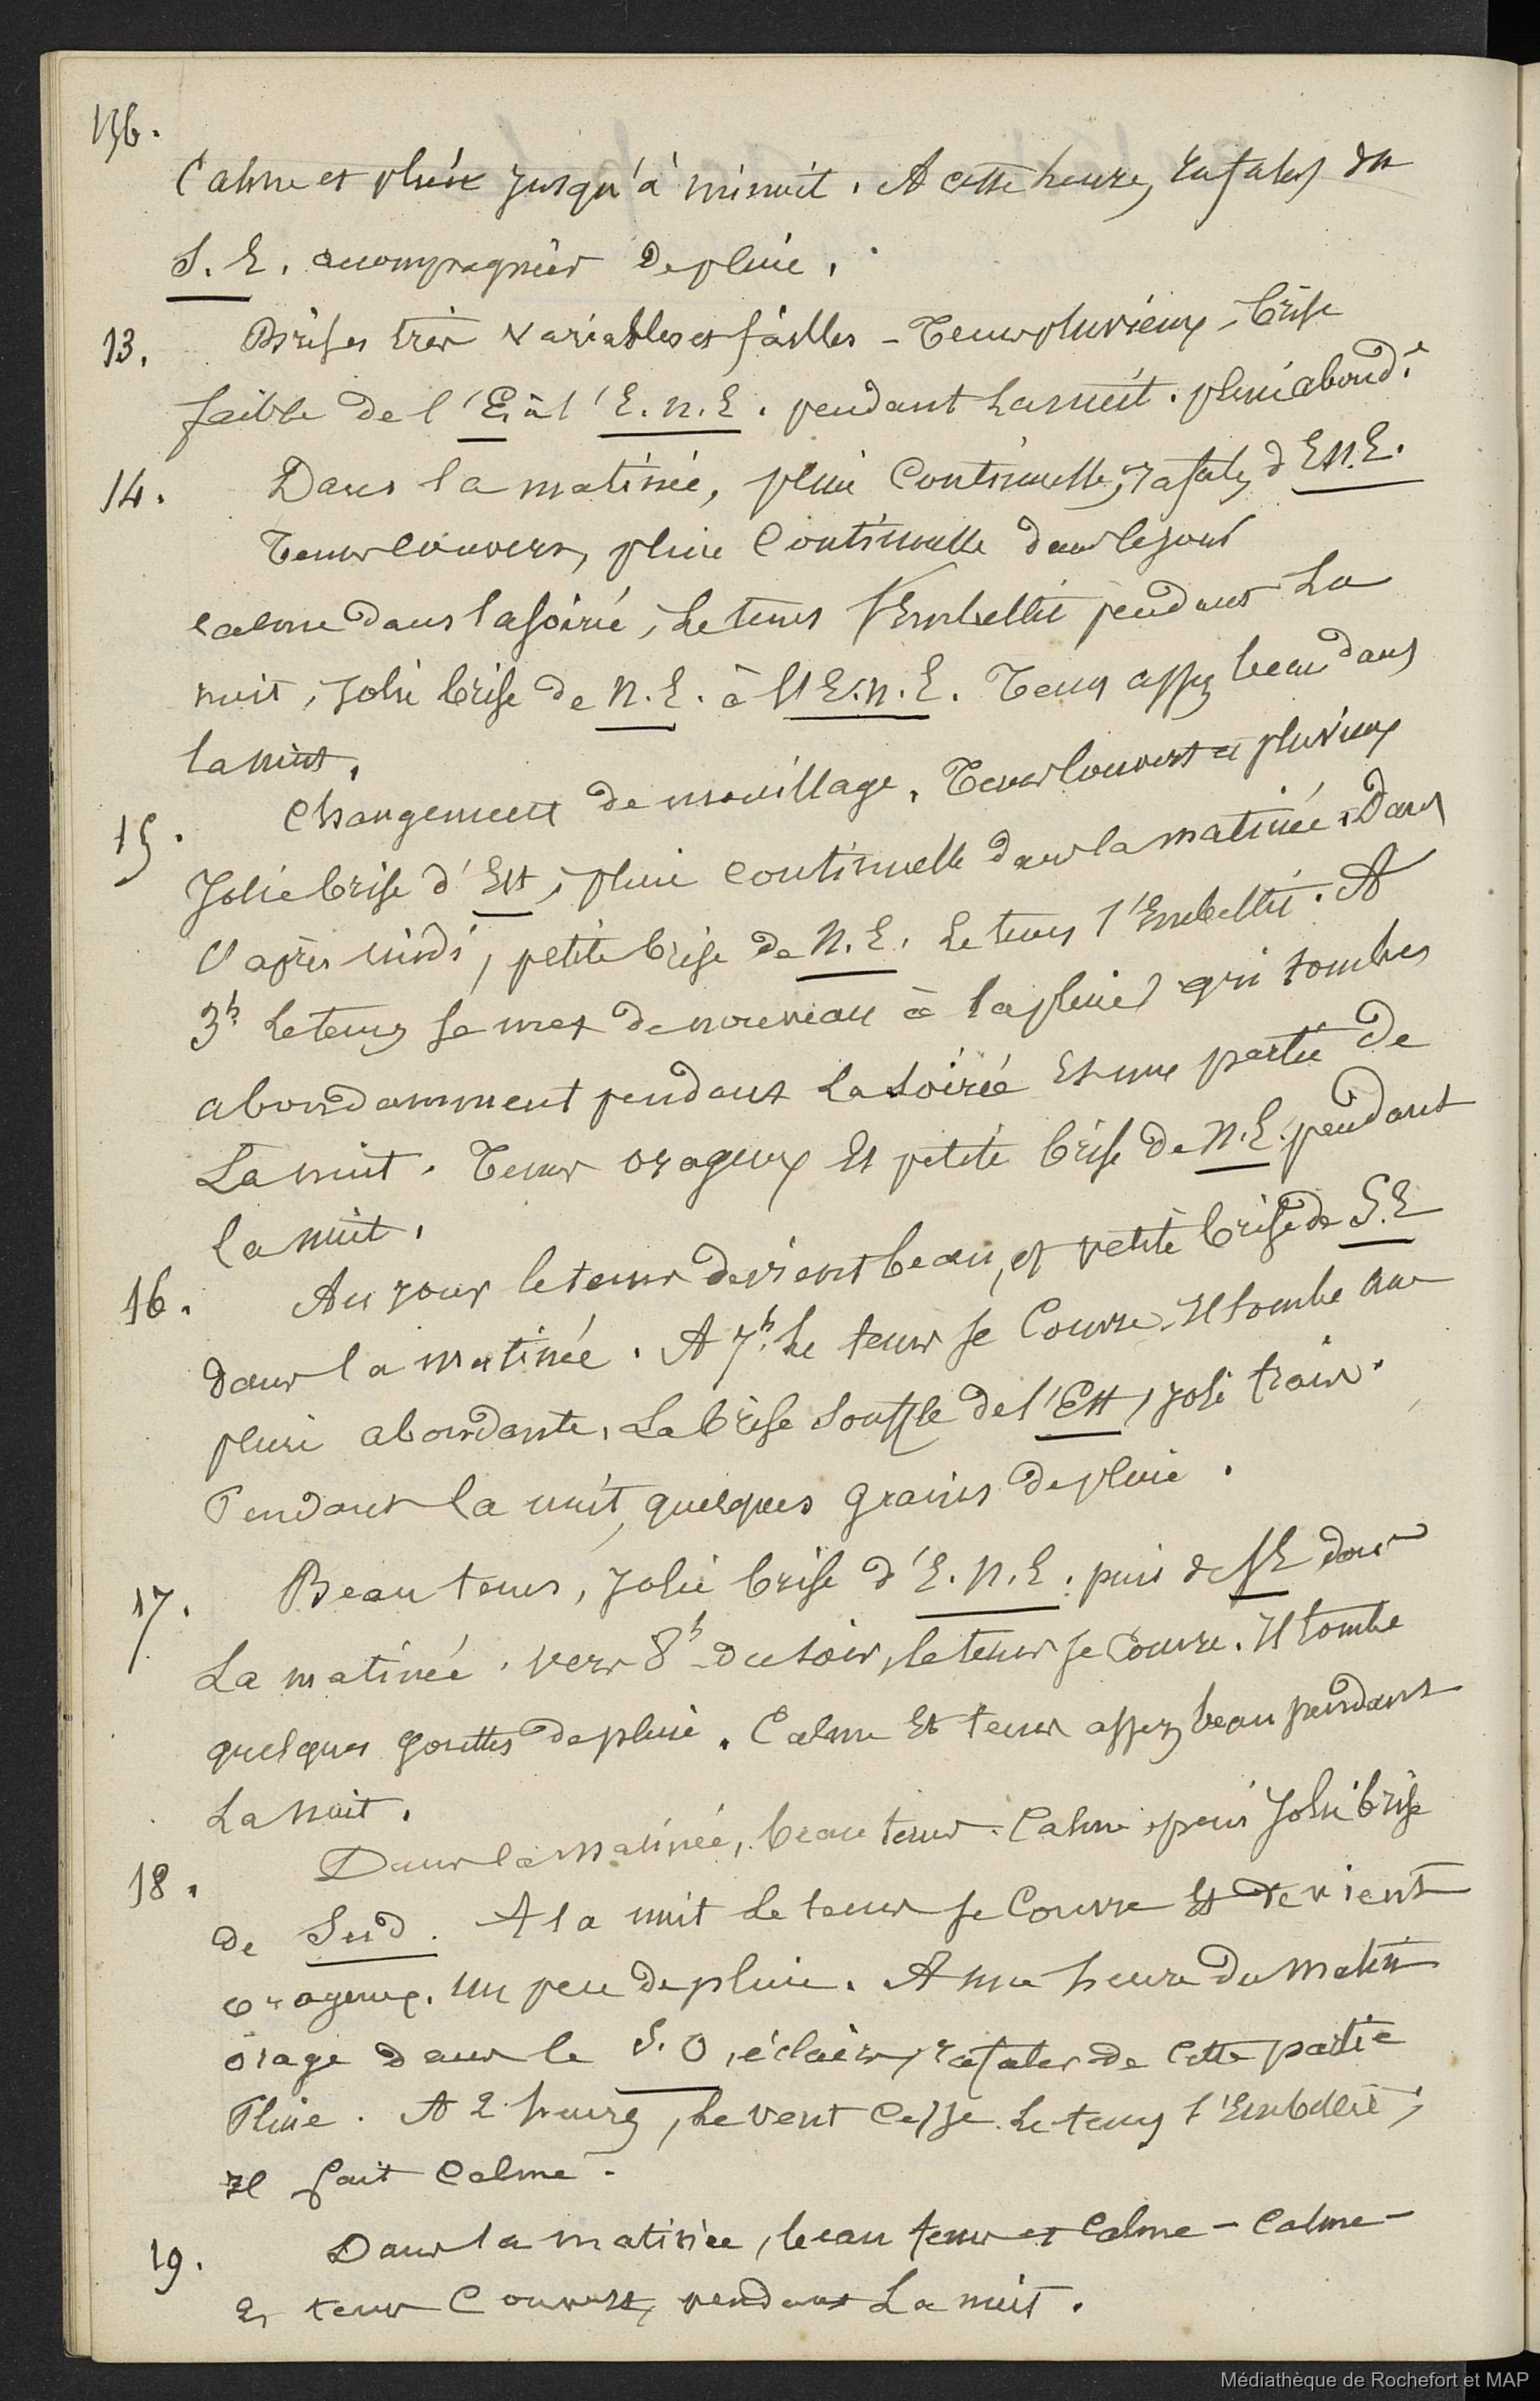 136.
Calme et pluie jusqu'à minuit. A cette heure, rafales du
S. E. accompagnées de pluie.
13. Brises très variables et faibles - Temps pluvieux, brise
faible de l'E. à l'E. N. E. pendant la nuit. pluie abond.te
14. Dans la matinée, pluie continuelle, rafales d'E.N.E.
Temps couvert, pluie continuelle dans le jour
calme dans la soirée, le tems s'embellit pendant la
nuit, jolie brise de N. E. à l'E. N. E. Temps assez beau dans
la nuit.
15. Changement de mouillage. Temps couvert et pluvieux
Jolie brise d'Est, pluie continuelle dans la matinée. Dans
l'après midi, petite brise de N. E. le tems s'embellit. A
3h le tems se met de nouveau à la pluie qui tombe
abondamment pendant la soirée et une partie de
la nuit. Temps orageux et petite brise de N. E. pendant
la nuit.
16. Au jour le tems devient beau, et petite brise de S. E
dans la matinée. A 7h le tems se couvre. Il tombe une
pluie abondante. La brise souffle de l'Est, joli train.
Pendant la nuit, quelques grains de pluie.
17. Beau tems, jolie brise d'E. N. E. puis de SE dans
la matinée. vers 8h du soir, le tems se couvre. Il tombe
quelques gouttes de pluie. Calme et tems assez beau pendant
la nuit.
18. Dans la matinée, beau tems. Calme, puis jolie brise
de Sud. A la nuit le tems se couvre et devient
orageux. un peu de pluie. A une heure du matin
orage dans le S. O, éclairs, rafales de cette partie
Pluie. A 2 heures, le vent cesse. le tems s'embellit,
il fait calme.
19. Dans la matinée, beau tems et calme - Calme -
Et tems couvert, pendant la nuit.
Médiathèque de Rochefort et MAP